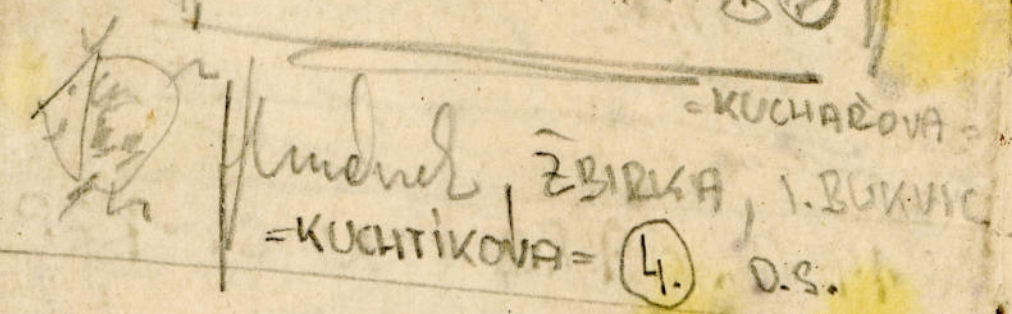 =KUCHAŘOVA=
, ŽBIRKA, I. BUKVIC
=KUCHTÍKOVA= 4. D.S.